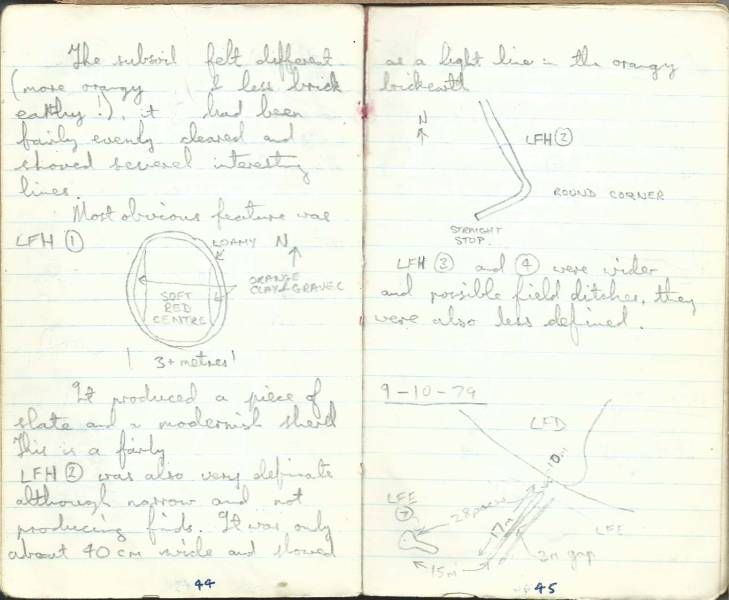 The subsoil felt different
(more orangy & less brick
earthy!), it had been
fairly evenly cleared and
showed several interesting
lines.
Most obvious feature was
LFH ①
LOAMY
N
ORANGE
CLAY + GRAVEL
SOFT
RED
CENTRE
3+ metres
It produced a piece of
slate and a modernish sherd
This is a fairly
LFH ② was also very definate
although narrow and not
producing finds. It was only
about 40 cm wide and showed
44
as a light line in the orangy
brickearth
N
LFH ②
ROUND CORNER
STRAIGHT
STOP.
LFH ③ and ④ were wider
and possible field ditches, they
were also less defined.
9-10-79
LFD
10m
LFE
⑦
28 paces
17m
LFE
2m gap
15m
45